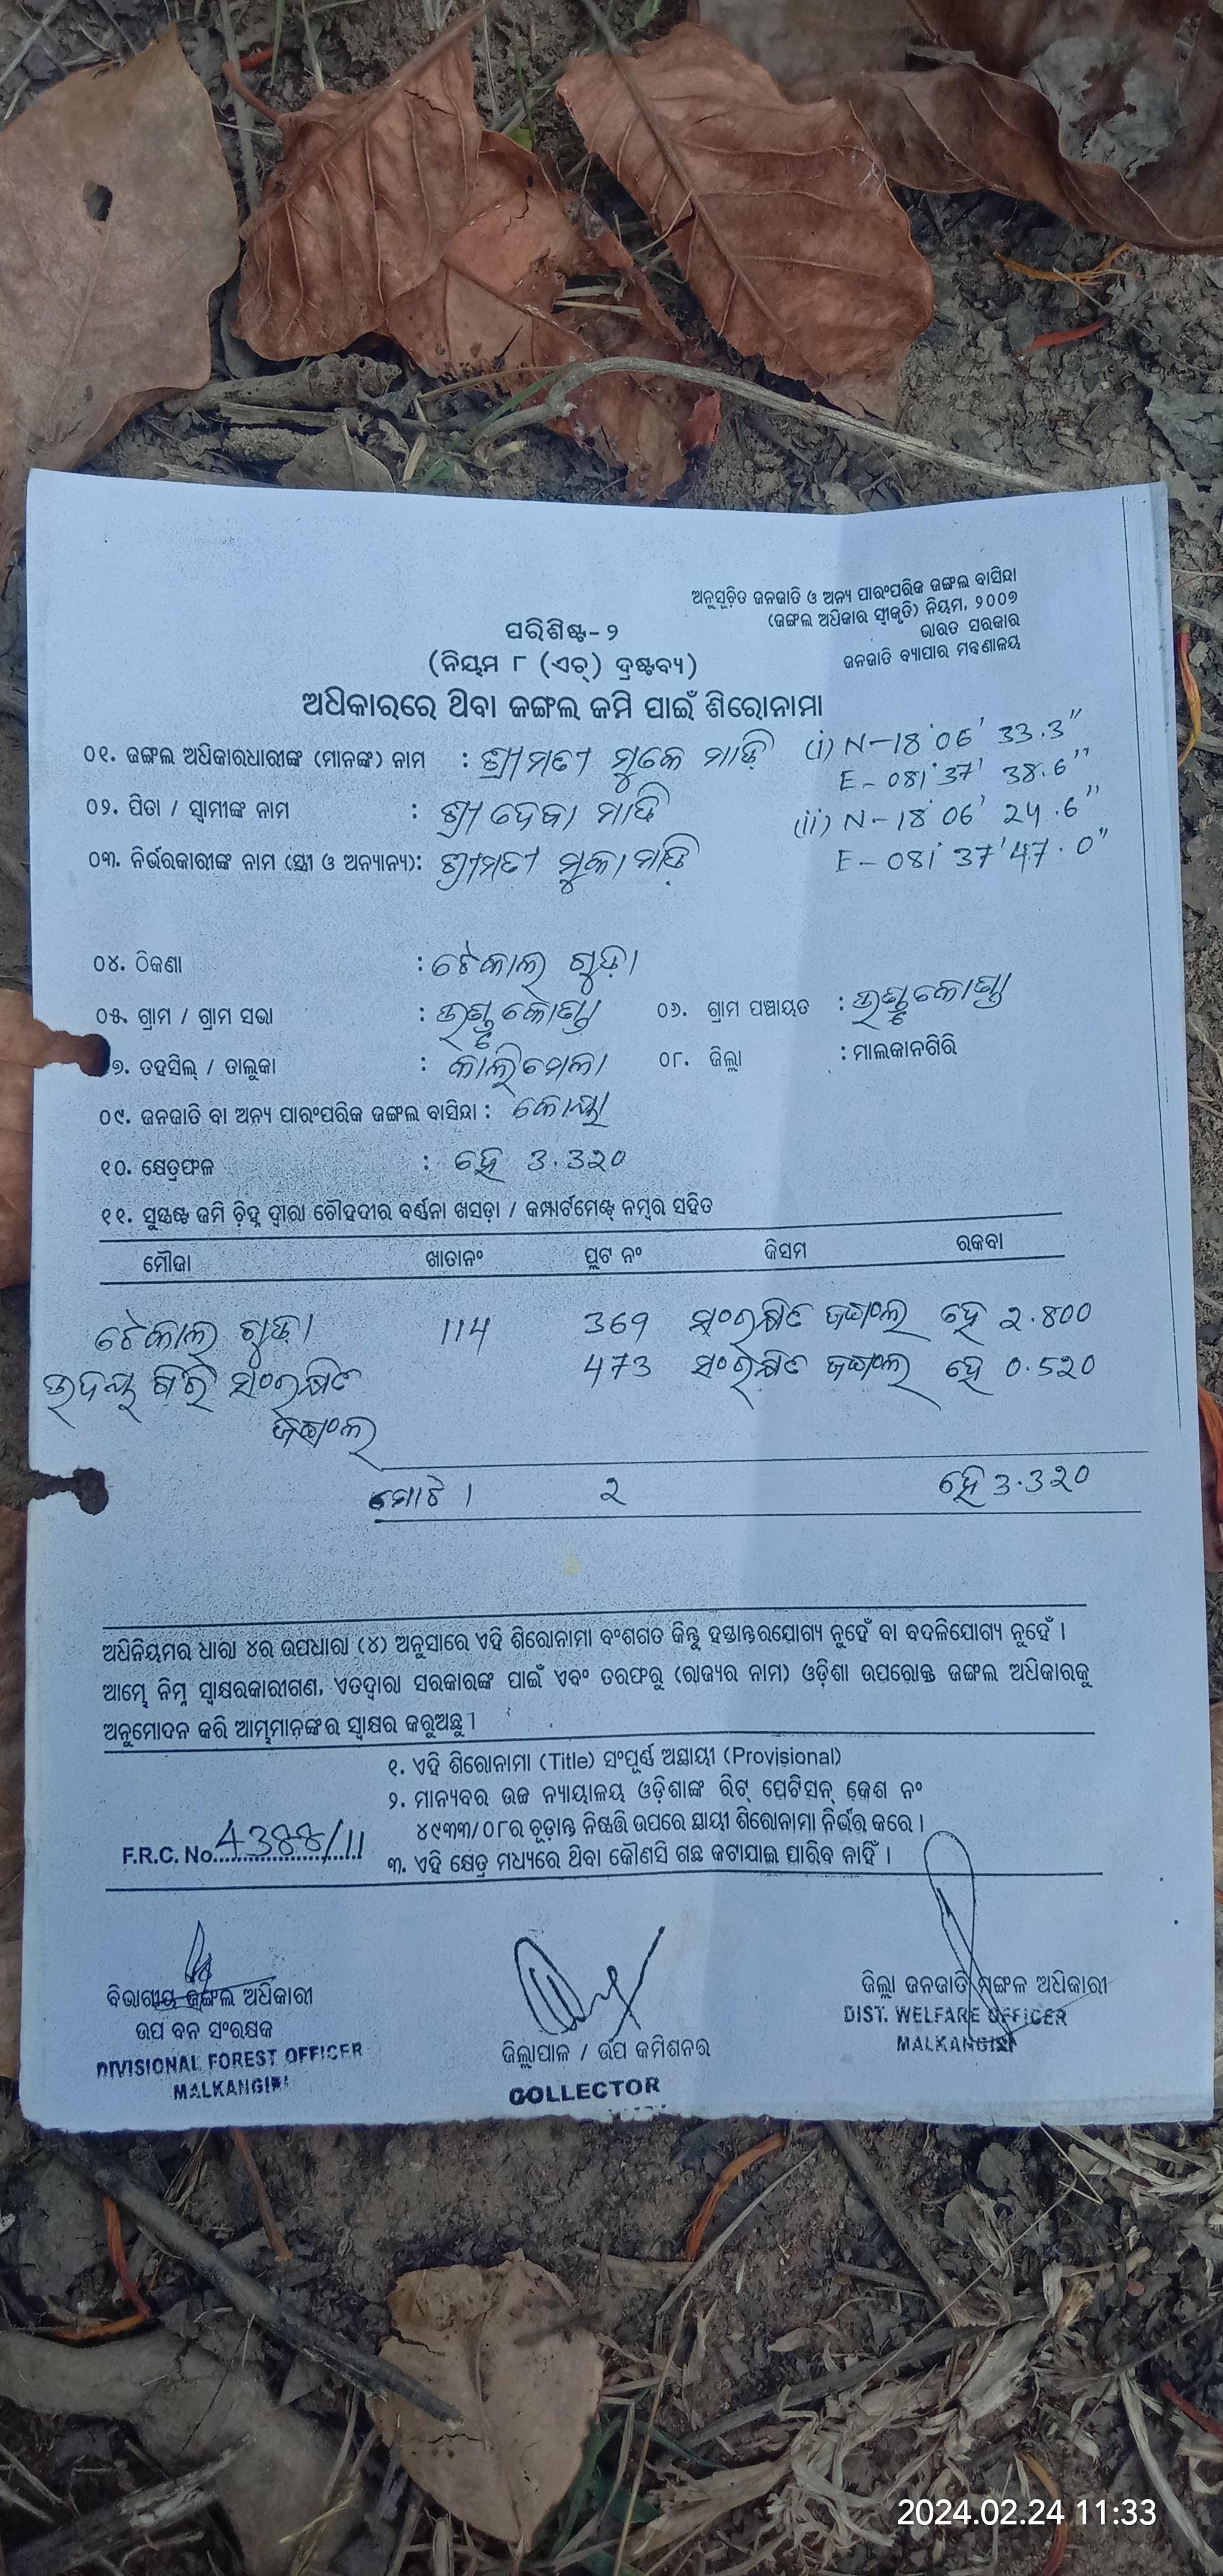 ଅନୁସୂଚିତ ଜନଜାତି ଓ ଅନ୍ୟ ପାରଂପରିକ ଜଙ୍ଗଲ ବାସିନ୍ଦା
(ଜଙ୍ଗଲ ଅଧିକାର ସ୍ୱୀକୃତି) ନିୟମ, ୨୦୦୭
ଭାରତ ସରକାର
ଜନଜାତି ବ୍ୟାପାର ମନ୍ତ୍ରଣାଳୟ
ପରିଶିଷ୍ଟ-୨
(ନିୟମ ୮ (ଏଚ୍) ଦ୍ରଷ୍ଟବ୍ୟ)
ଅଧିକାରରେ ଥିବା ଜଙ୍ଗଲ ଜମି ପାଇଁ ଶିରୋନାମା
୦୧. ଜଙ୍ଗଲ ଅଧିକାରଧାରୀଙ୍କ (ମାନଙ୍କ) ନାମ : ଶ୍ରୀମତୀ ମୁକେ ମାଡ଼ି (i) N-18°06' 33.3"
E-081°37' 38.6"
୦୨. ପିତା / ସ୍ୱାମୀଙ୍କ ନାମ : ଶ୍ରୀ ଦେବା ମାଡି (ii) N-18°06' 24.6"
୦୩. ନିର୍ଭରକାରୀଙ୍କ ନାମ (ସ୍ତ୍ରୀ ଓ ଅନ୍ୟାନ୍ୟ): ଶ୍ରୀମତୀ ମୁକା ମାଡ଼ି E-081°37'47.0"
୦୪. ଠିକଣା : ଟେକାଲ ଗୁଡ଼ା
୦୫. ଗ୍ରାମ / ଗ୍ରାମ ସଭା : ୦୬. ଗ୍ରାମ ପଞ୍ଚାୟତ :
୭. ତହସିଲ୍ / ତାଲୁକା : କାଲିମେଳା ୦୮. ଜିଲ୍ଲା : ମାଲକାନଗିରି
୦୯. ଜନଜାତି ବା ଅନ୍ୟ ପାରଂପରିକ ଜଙ୍ଗଲ ବାସିନ୍ଦା : କୋୟା
୧୦. କ୍ଷେତ୍ରଫଳ : ହେ 3.320
୧୧. ସୁସ୍ପଷ୍ଟ ଜମି ଚିହ୍ନ ଦ୍ୱାରା ଚୌହଦୀର ବର୍ଣ୍ଣନା ଖସଡ଼ା / କମ୍ପାର୍ଟମେଣ୍ଟ୍ ନମ୍ବର ସହିତ
ମୌଜା ଖାତାନଂ ପ୍ଲଟ ନଂ କିସମ ରକବା
ଟେକାଲ ଗୁଡ଼ା 114 369 ସଂରକ୍ଷିତ ଜଙ୍ଗଲ ହେ 2.800
ଉଦୟ ଗିରି ସଂରକ୍ଷିତ 473 ସଂରକ୍ଷିତ ଜଙ୍ଗଲ ହେ 0.520
ଜଙ୍ଗଲ
ମୋଟ । 2 ହେ 3.320
ଅଧିନିୟମର ଧାରା ୪ର ଉପଧାରା (୪) ଅନୁସାରେ ଏହି ଶିରୋନାମା ବଂଶଗତ କିନ୍ତୁ ହସ୍ତାନ୍ତରଯୋଗ୍ୟ ନୁହେଁ ବା ବଦଳିଯୋଗ୍ୟ ନୁହେଁ ।
ଆମ୍ଭେ ନିମ୍ନ ସ୍ୱାକ୍ଷରକାରୀଗଣ, ଏତଦ୍ୱାରା ସରକାରଙ୍କ ପାଇଁ ଏବଂ ତରଫରୁ (ରାଜ୍ୟର ନାମ) ଓଡ଼ିଶା ଉପରୋକ୍ତ ଜଙ୍ଗଲ ଅଧିକାରକୁ
ଅନୁମୋଦନ କରି ଆମ୍ଭମାନଙ୍କର ସ୍ୱାକ୍ଷର କରୁଅଛୁ ।
୧. ଏହି ଶିରୋନାମା (Title) ସଂପୂର୍ଣ୍ଣ ଅସ୍ଥାୟୀ (Provisional)
୨. ମାନ୍ୟବର ଉଚ୍ଚ ନ୍ୟାୟାଳୟ ଓଡ଼ିଶାଙ୍କ ରିଟ୍ ପେଟିସନ୍ କେଶ ନଂ
୪୯୩୩/୦୮ର ଚୂଡ଼ାନ୍ତ ନିଷ୍ପତ୍ତି ଉପରେ ସ୍ଥାୟୀ ଶିରୋନାମା ନିର୍ଭର କରେ ।
F.R.C. No. 4388/11 ୩. ଏହି କ୍ଷେତ୍ର ମଧ୍ୟରେ ଥିବା କୌଣସି ଗଛ କଟାଯାଇ ପାରିବ ନାହିଁ ।
ବିଭାଗୀୟ ଜଙ୍ଗଲ ଅଧିକାରୀ
ଉପ ବନ ସଂରକ୍ଷକ
DIVISIONAL FOREST OFFICER
MALKANGIRI
ଜିଲ୍ଲାପାଳ / ଉପ କମିଶନର
COLLECTOR
ଜିଲ୍ଲା ଜନଜାତି ମଙ୍ଗଳ ଅଧିକାରୀ
DIST. WELFARE OFFICER
MALKANGIRI
2024.02.24 11:33